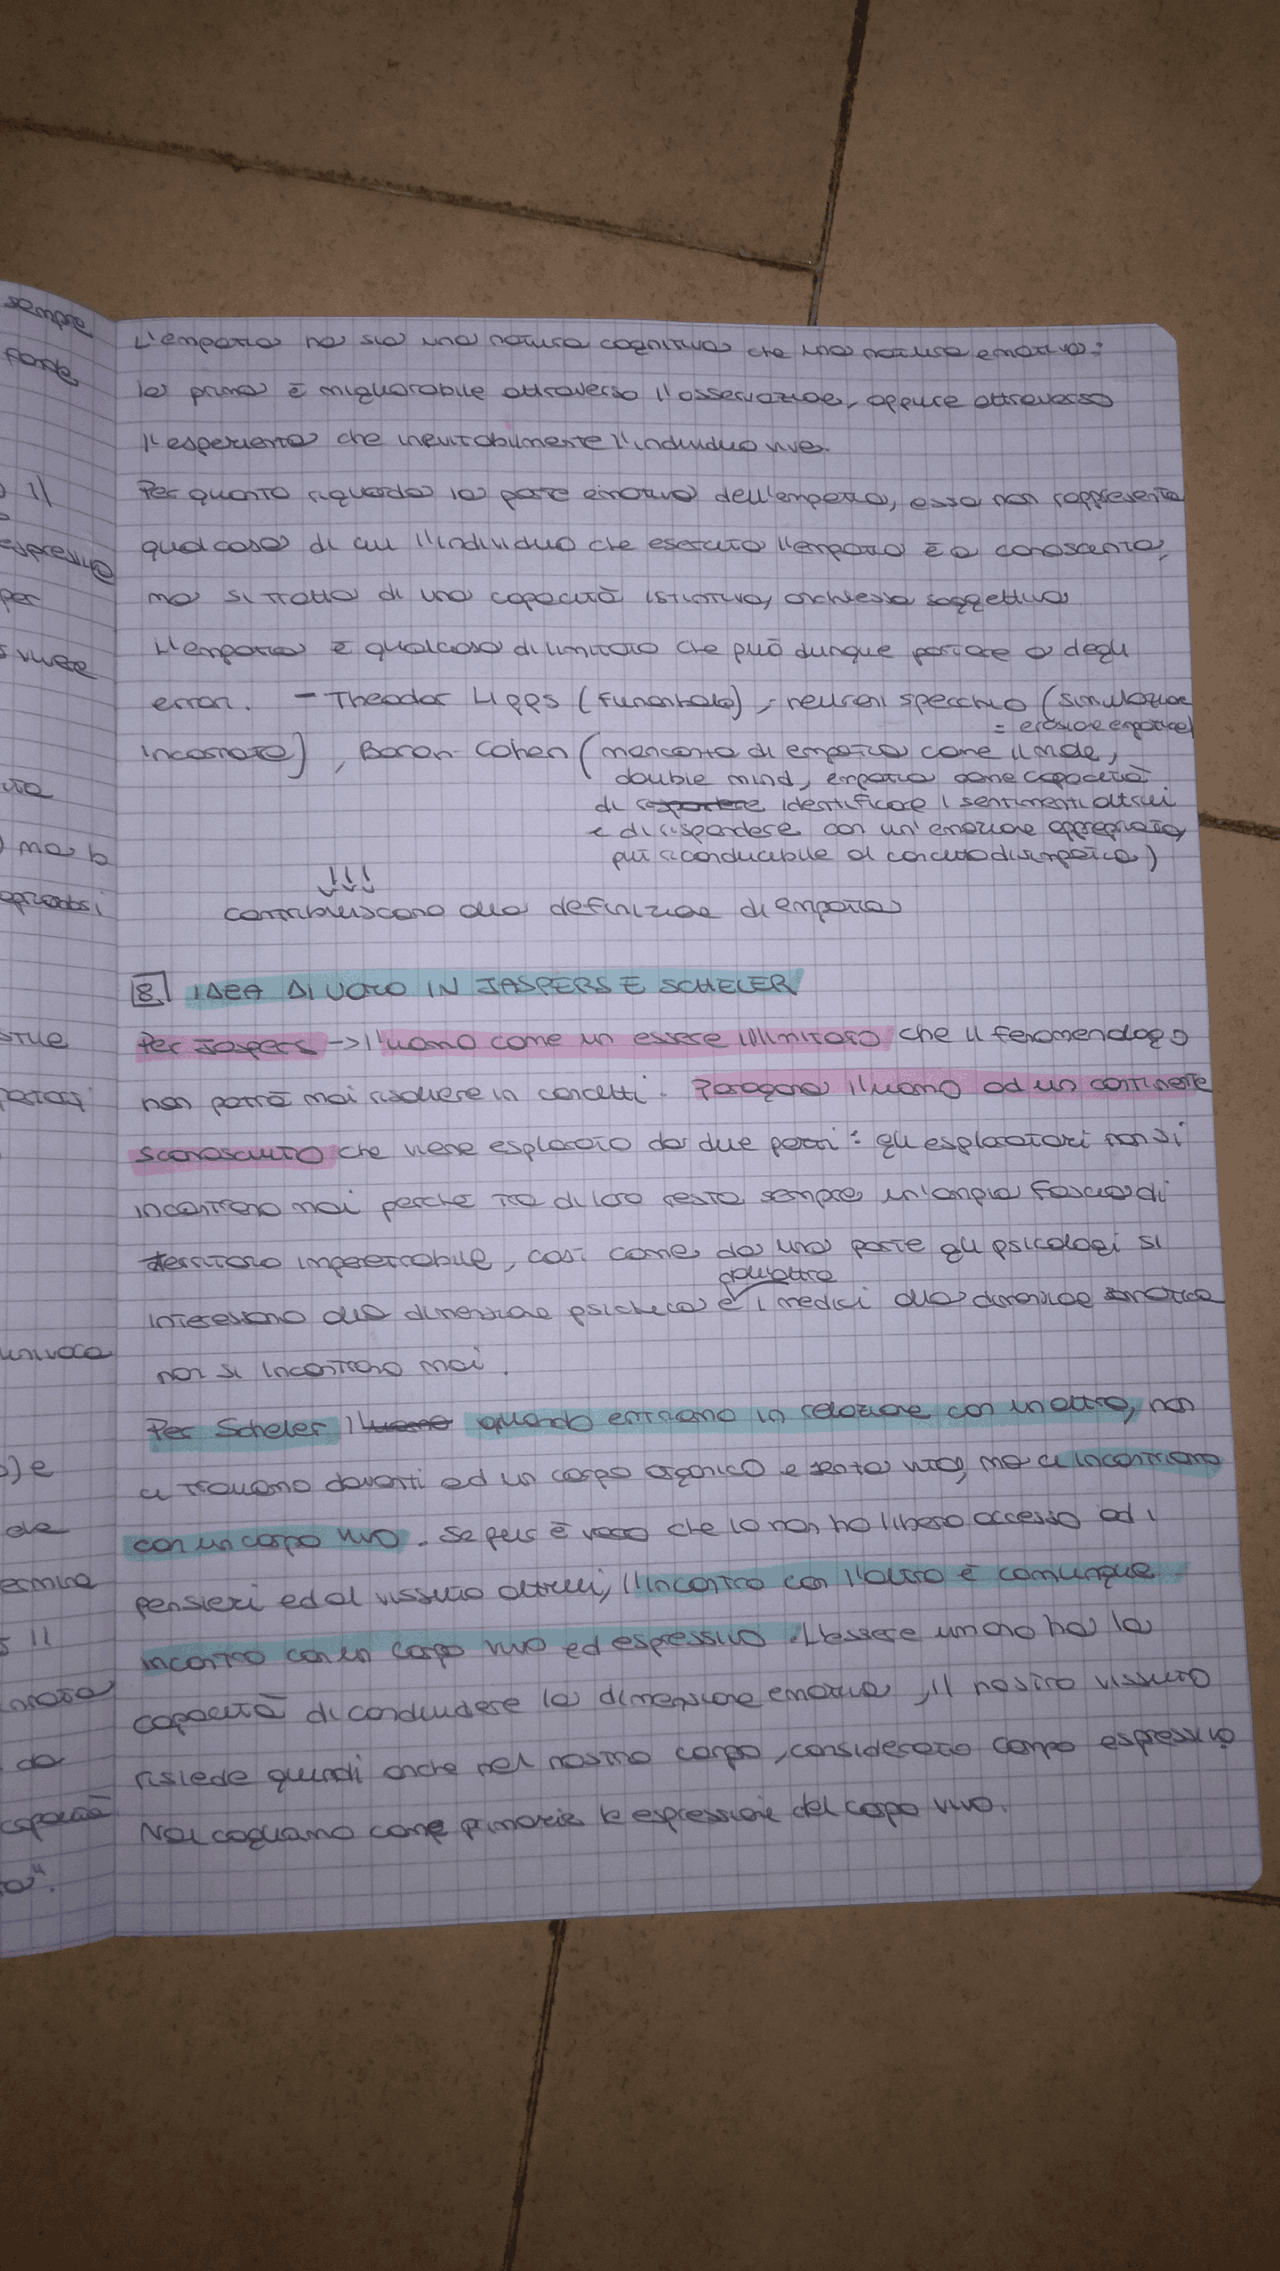 sempre
L'empatia ha sia una natura cognitiva che una natura emotiva:
la prima è migliorabile attraverso l'osservazione, oppure attraverso
l'esperienza che inevitabilmente l'individuo vive.
Per quanto riguarda la parte emotiva dell'empatia, essa non rappresenta
qualcosa di cui l'individuo che esercita l'empatia è a conoscenza,
ma si tratta di una capacità istintiva, anch'essa soggettiva
L'empatia è qualcosa di limitato che può dunque portare a degli
errori. - Theodor Lipps (funambolo), neuroni specchio (simulazione
= erosione empatica)
incarnata), Baron-Cohen (mancanza di empatia come il male,
double mind, empatia come capacità
di identificare i sentimenti altrui
e di rispondere con un'emozione appropriata,
più riconducibile al concetto di simpatia)
↓↓↓
contribuiscono alla definizione di empatia
8 IDEA DI UOMO IN JASPERS E SCHELER
Per Jaspers -> l'uomo come un essere illimitato che il fenomenologo
non potrà mai risolvere in concetti. Paragona l'uomo ad un continente
sconosciuto che viene esplorato da due parti: gli esploratori non si
incontrano mai perché tra di loro resta sempre un'ampia fascia di
territorio impenetrabile, così come da una parte gli psicologi si
dall'altra
interessano alla dimensione psichica e i medici alla dimensione somatica
non si incontrano mai.
Per Scheler l'uomo quando entriamo in relazione con un altro, non
ci troviamo davanti ad un corpo organico e senza vita, ma ci incontriamo
con un corpo vivo. Se pur è vero che io non ho libero accesso ad i
pensieri ed al vissuto altrui, l'incontro con l'altro è comunque
incontro con un corpo vivo ed espressivo. L'essere umano ha la
capacità di condividere la dimensione emotiva, il nostro vissuto
risiede quindi anche nel nostro corpo, considerato corpo espressivo
Noi cogliamo come primarie le espressioni del corpo vivo.